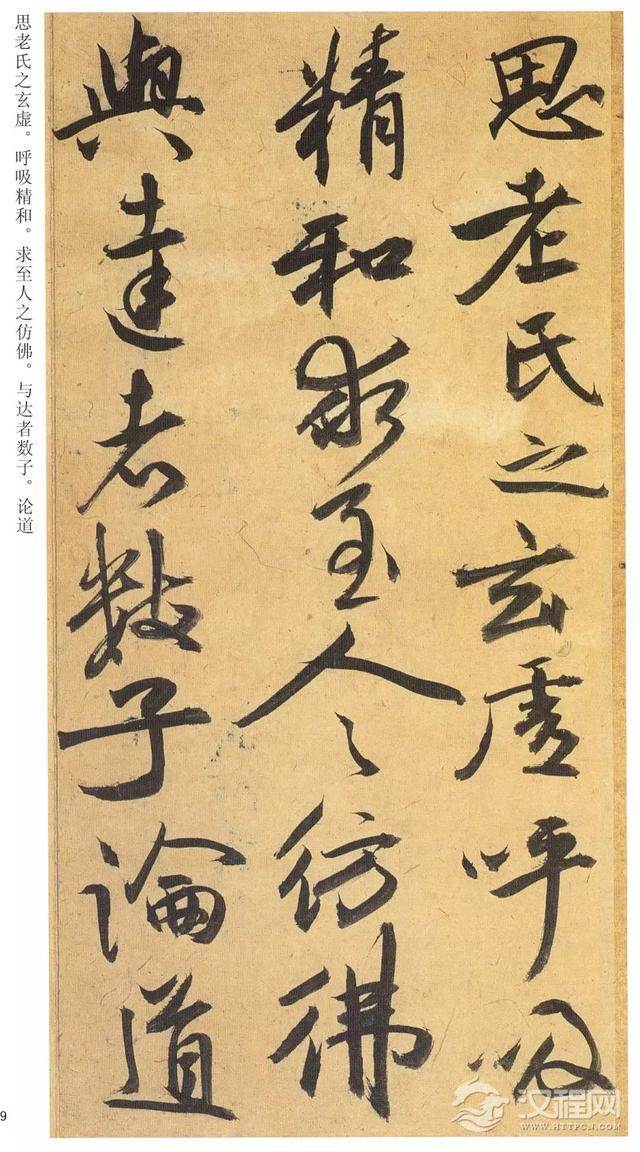 思老氏之玄虚呼吸
精和求至人之仿佛
與達者數子論道
思老氏之玄虚。呼吸精和。求至人之仿佛。与达者数子。论道
9
汉程网
WWW.HTTPCN.COM